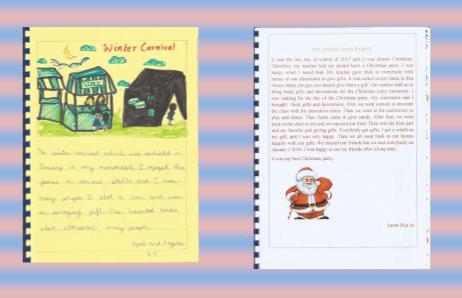 Winter Carnival
The winter carnival which was conducted in
January is very memorable. I enjoyed the
games in various stalls and I won
many prizes. I shot a can and won
an amazing gift. The haunted house
also attracted many people.
MY CHRISTMAS PARTY
It was the last day of school of 2015 and it was almost Christmas.
Therefore, my teacher told we should have a Christmas party. I was
happy when I heard that. My teacher gave chits to everybody with
names of our classmates to give gifts. It was called secret Santa in that
whose name you get you should give them a gift. Our teacher told us to
bring food, gifts and decorations for the party tomorrow. I
was waiting for the day of the Christmas party. My classmates and I
brought food, gifts and decorations. First, we went outside to decorate
the class with the decorative items. Then we went to the auditorium to
play and dance. Then Santa came to give candy. After that, we went
back to the class to eat and we enjoyed our food. Then was the final part
and my favorite part giving gifts. Everybody got gifts, I got a watch as
my gift, and I was very happy. Then we all went back to our homes
happily with our gifts. We missed our friends but we met everybody on
January 3 2016. I was happy to see my friends after a long time.
It was my best Christmas party.